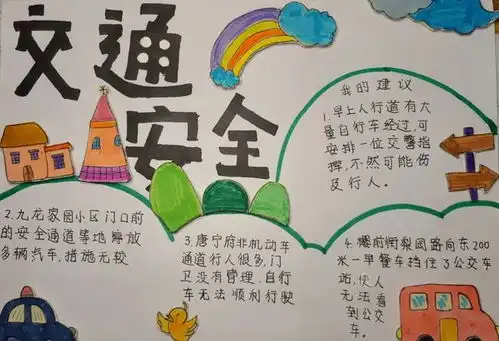 交通
安全
我的建议
1.早上人行道有大
量自行车经过,可
安排一位交警指
挥,不然可能伤
及行人。
2.九龙家园小区门口前
的安全通道等地停放
多辆汽车,措施无较
3.唐宁府非机动车
通道行人很多,门
卫没有管理,自行
车无法顺利行驶
4.樱前街梨园路向东200
米一早餐车挡住了公交车
站,使人
无法看
到公交
车。